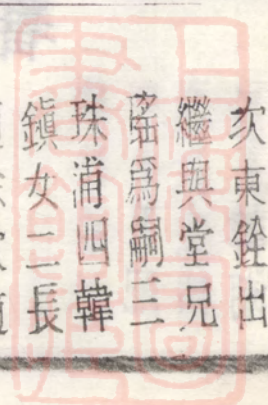 次東銓出
繼與堂兄
瑤爲嗣三
珠浦四韓
鎭女二長